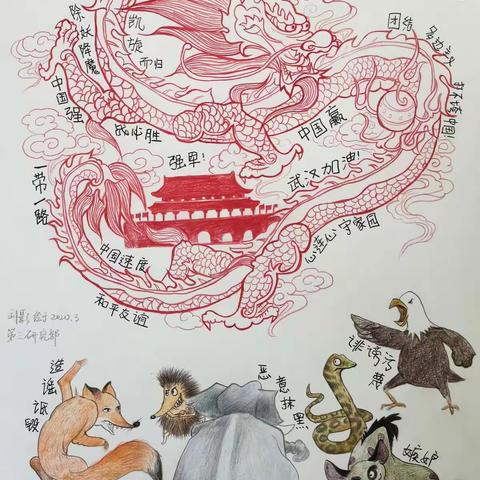 除妖降魔
凯旋
而归
团结
多边主义
打不垮中国!
中国强
战必胜
中国赢
强军!
武汉加油!
一带一路
心连心 守家园
中国速度
和平友谊
绘于2020.3
第三研究部
造谣
诋毁
恶意
抹黑
诽谤污蔑
嫉妒